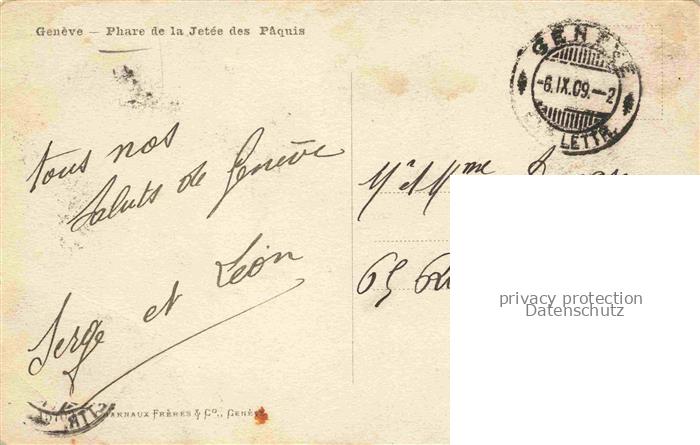 Genève — Phare de la Jetée des Pâquis
GENÈVE
-6.IX.09.-2
LETTR.
tous nos
saluts de Genève
Serge et Léon
Mr et Mme
65
privacy protection
Datenschutz
FRÈRES & Co., GENÈVE